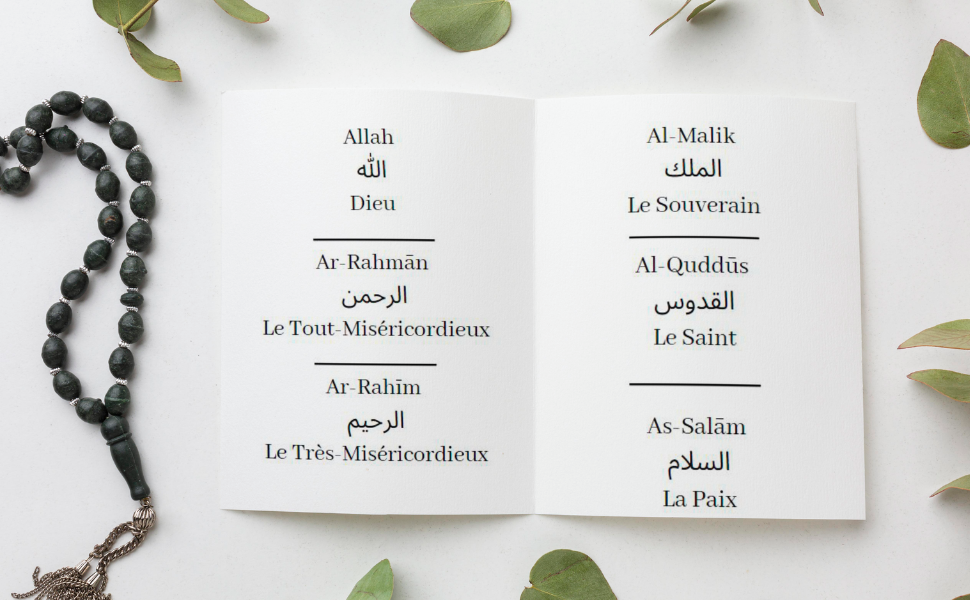 Allah
الله
Dieu
Ar-Rahmān
الرحمن
Le Tout-Miséricordieux
Ar-Rahīm
الرحيم
Le Très-Miséricordieux
Al-Malik
الملك
Le Souverain
Al-Quddūs
القدوس
Le Saint
As-Salām
السلام
La Paix